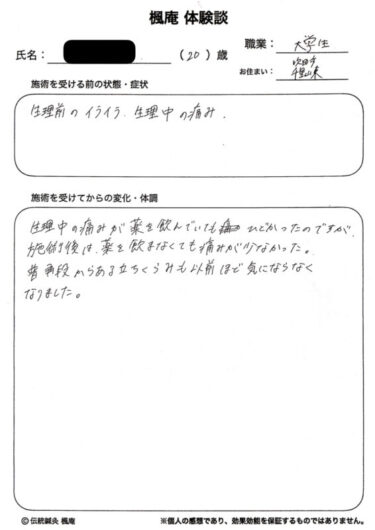 楓庵 体験談
氏名： （20）歳
職業： 大学生
お住まい： 吹田市
千里山東
施術を受ける前の状態・症状
生理前のイライラ、生理中の痛み。
施術を受けてからの変化・体調
生理中の痛みが薬を飲んでいても ひどかったのですが、
施術後は、薬を飲まなくても痛みが少なかった。
普段からある立ちくらみも以前ほど気にならなく
なりました。
© 伝統鍼灸 楓庵
※個人の感想であり、効果効能を保証するものではありません。